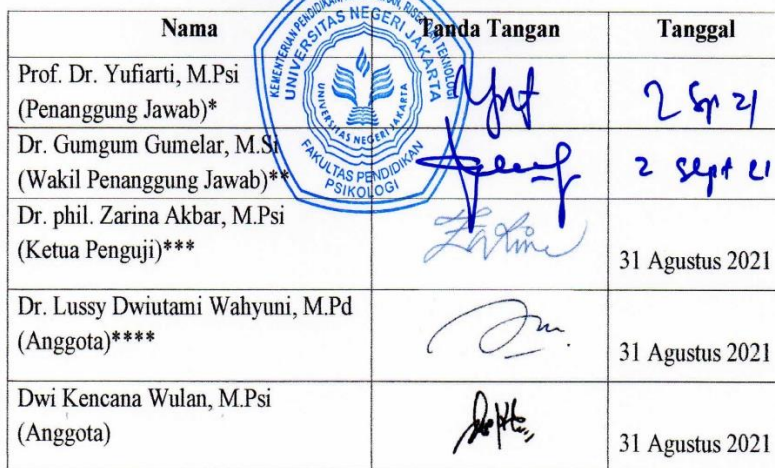 Nama Tanda Tangan Tanggal
Prof. Dr. Yufiarti, M.Psi
(Penanggung Jawab)* 2 Sp 21
Dr. Gumgum Gumelar, M.Si
(Wakil Penanggung Jawab)** 2 Sept 21
Dr. phil. Zarina Akbar, M.Psi
(Ketua Penguji)*** 31 Agustus 2021
Dr. Lussy Dwiutami Wahyuni, M.Pd
(Anggota)**** 31 Agustus 2021
Dwi Kencana Wulan, M.Psi
(Anggota) 31 Agustus 2021
UNIVERSITAS NEGERI JAKARTA
UNIVERSITAS NEGERI JAKARTA
FAKULTAS PENDIDIKAN
PSIKOLOGI